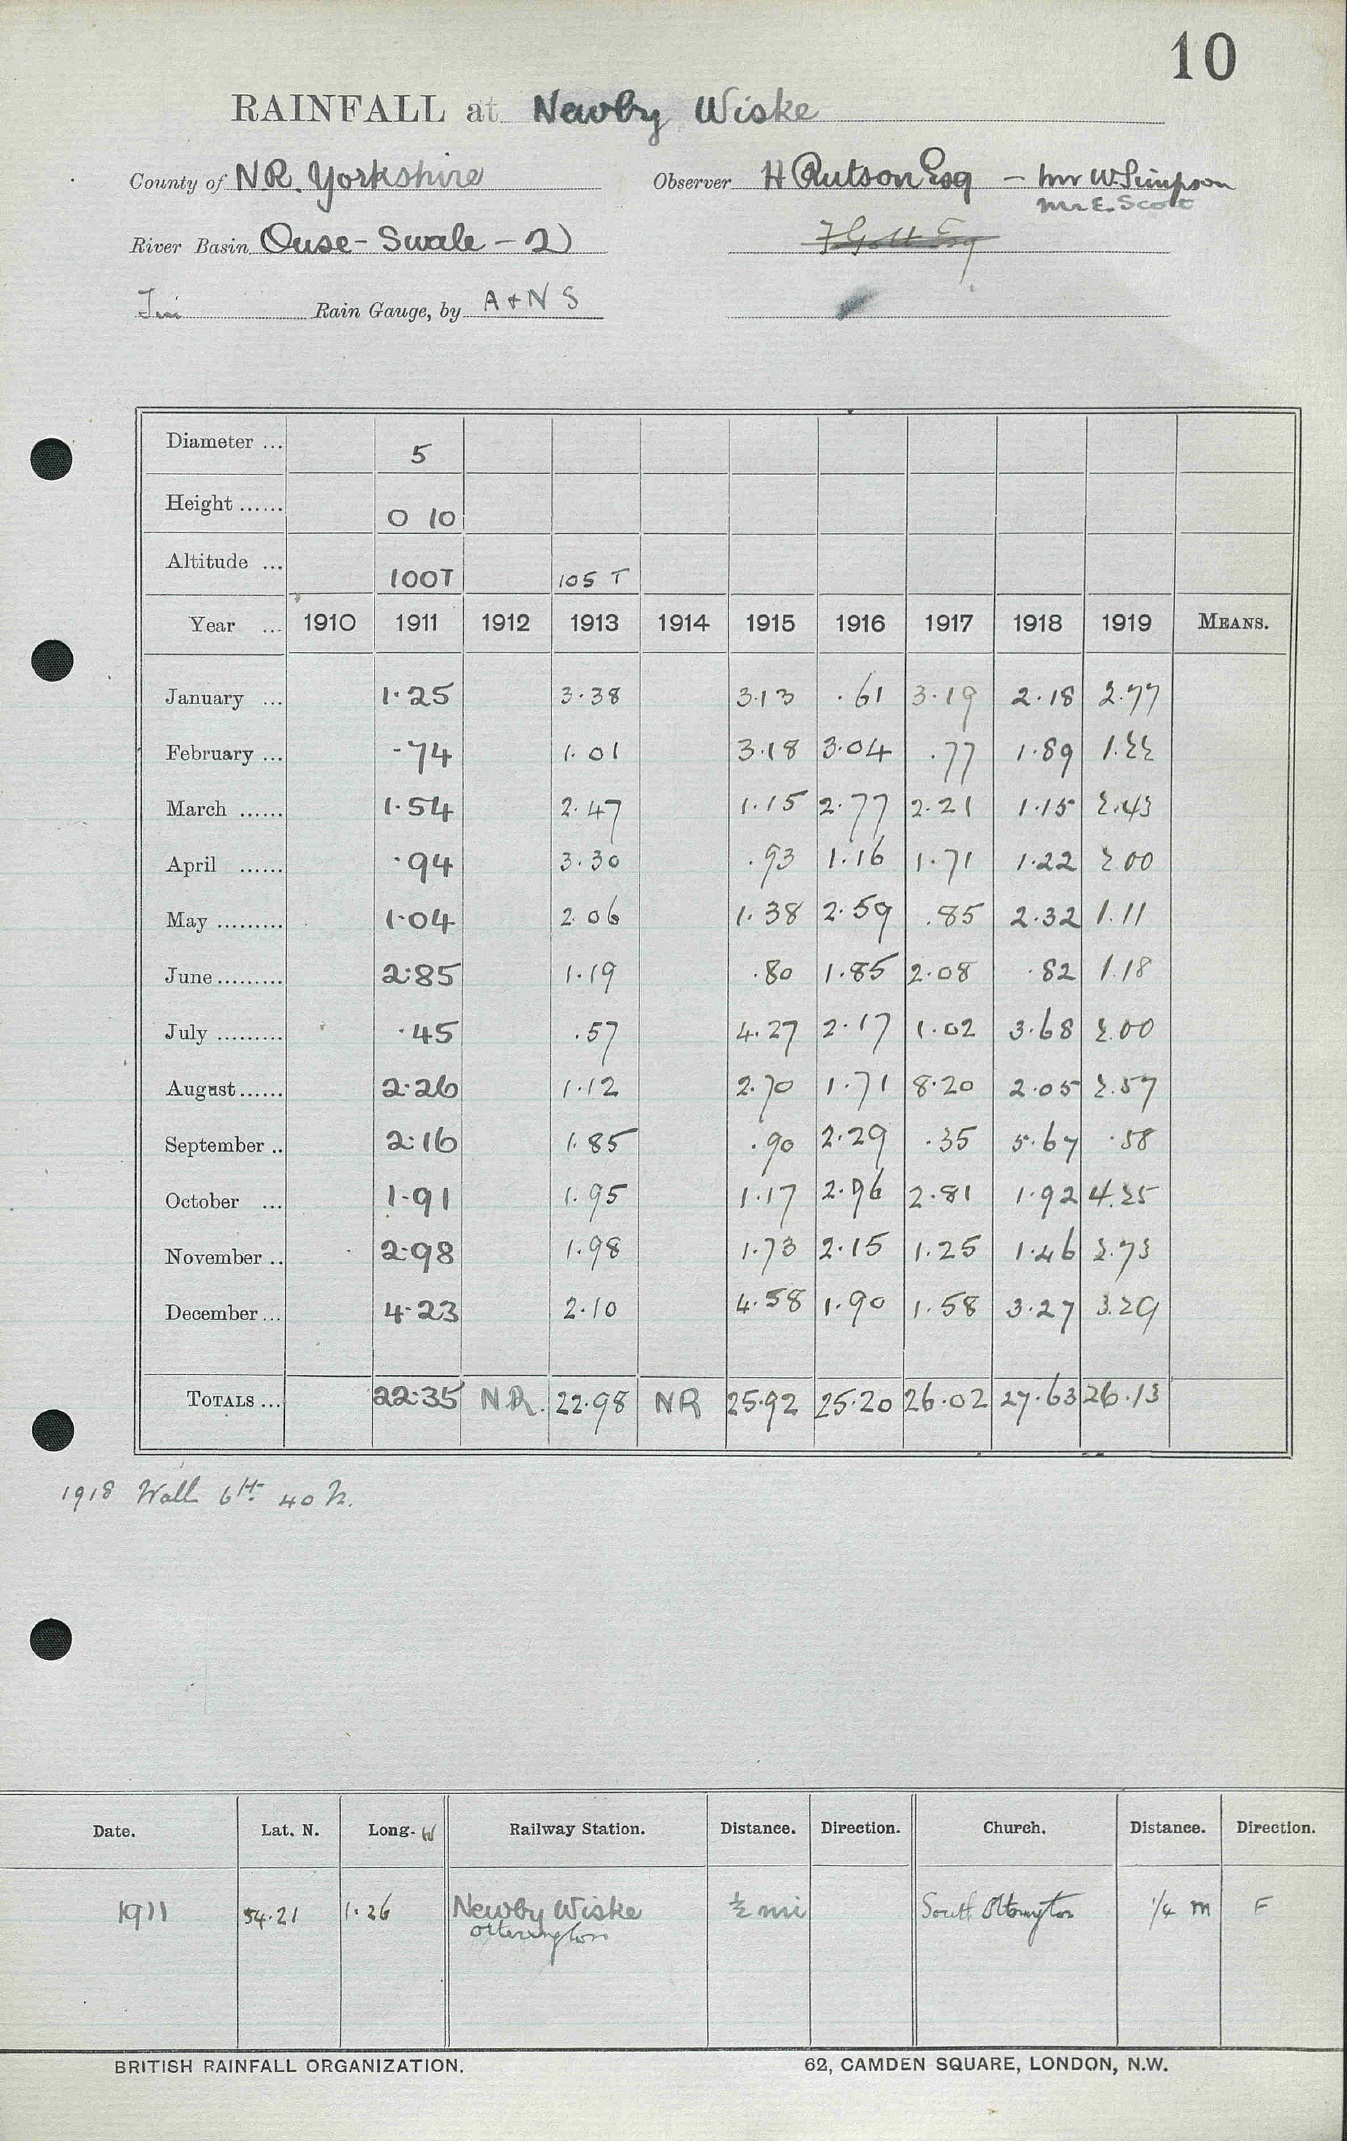 10
RAINFALL at Newby Wiske
County of N.R. Yorkshire Observer H Rutson Esq - Mr W. Simpson
Mr E. Scott
River Basin Ouse - Swale - 2) F Gott Esq
Rain Gauge, by A & N S
Diameter ... 5
Height ...... 0 10
Altitude ... 100T 105 T
Year ... 1910 1911 1912 1913 1914 1915 1916 1917 1918 1919 MEANS.
January ... 1.25 3.38 3.13 .61 3.19 2.18 2.77
February ... .74 1.01 3.18 3.04 .77 1.89 1.22
March ...... 1.54 2.47 1.15 2.77 2.21 1.15 2.43
April ...... .94 3.30 .93 1.16 1.71 1.22 2.00
May ......... 1.04 2.06 1.38 2.59 .85 2.32 1.11
June ......... 2.85 1.19 .80 1.85 2.08 .82 1.18
July ......... .45 .57 4.27 2.17 1.02 3.68 2.00
August ...... 2.26 1.12 2.70 1.71 8.20 2.05 2.57
September .. 2.16 1.85 .90 2.29 .35 5.67 .58
October ... 1.91 1.95 1.17 2.96 2.81 1.92 4.25
November .. 2.98 1.98 1.73 2.15 1.25 1.46 2.73
December ... 4.23 2.10 4.58 1.90 1.58 3.27 3.29
TOTALS ... 22.35 N.R. 22.98 NR 25.92 25.20 26.02 27.63 26.13
1918 Wall 6ft. 40
Date. Lat. N. Long. W Railway Station. Distance. Direction. Church. Distance. Direction.
1911 54.21 1.26 Newby Wiske ½ mi South Otterington ¼ m E
Otterington
BRITISH RAINFALL ORGANIZATION. 62, CAMDEN SQUARE, LONDON, N.W.